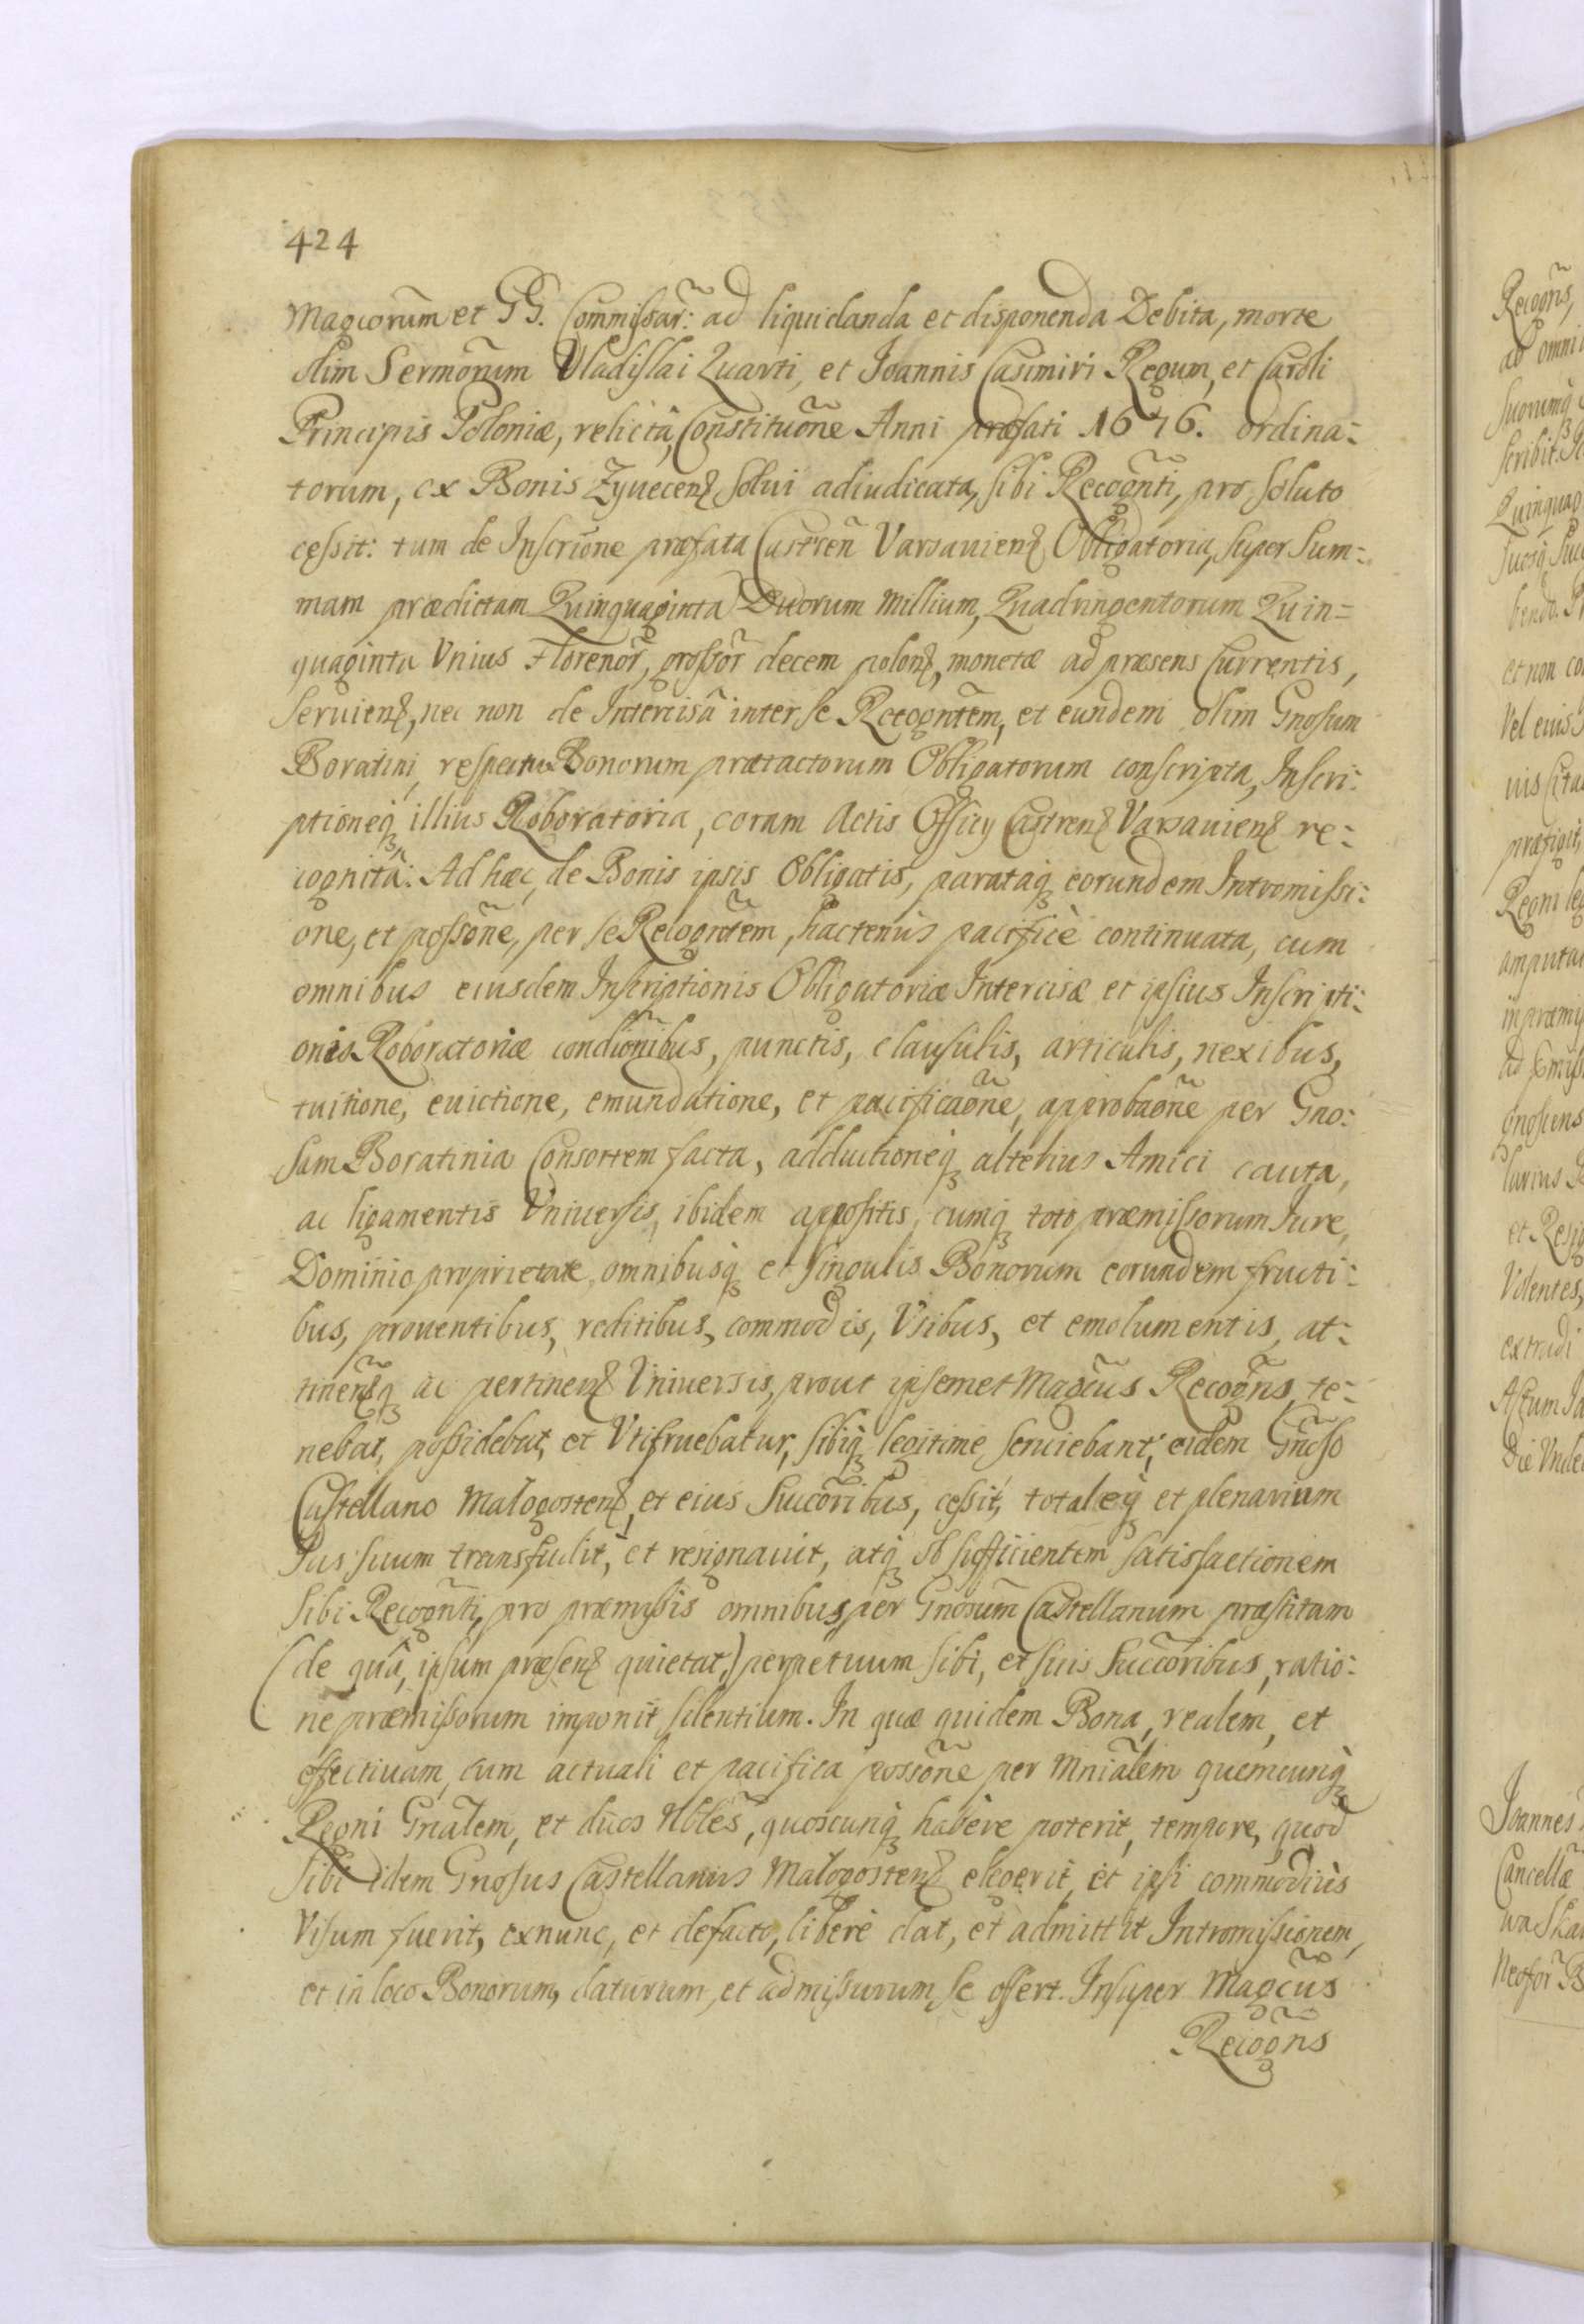 424
Magcorum̃ et GG. Commissar̃: ad liquidanda et disponenda Debita, morte
olim Sermõrum Vladislai Quarti, et Joannis Casimiri Regum, et Caroli
Principis Poloniæ, relicta, Constituõne Anni præfati 1676. ordina-
torum, ex Bonis Zyuecenꝭ solui adiudicata, sibi Recogñti, pro soluto
cessit: tum de Inscriõne præfata Castren̄ Varsauienꝭ Obligatoria, super Sum-
mam prædictam Quinquaginta Duorum Millium, Quadringentorum Quin-
quaginta Vnius Florenor̃, grossor̃ decem polonꝭ, monetæ ad præsens currentis,
seruienꝭ, nec non de Intercisâ inter se Recogñtem, et eundem olim Gnosum
Boratini, respectu Bonorum prætactorum Obligatorum conscripta, Inscri-
ptioneqꝫ illius Roboratoria, coram Actis Officij Castrenꝭ Varsauienꝭ re-
cognitâ: Ad hæc, de Bonis ipsis Obligatis, parataqꝫ eorundem Intromissi-
one, et possõne, per se Recogñtem, hactenùs pacificè continuata, cum
omnibus eiusdem Inscriptionis Obligatoriæ Intercisæ et ipsius Inscripti-
onis Roboratoriæ condiõnibus, punctis, clausulis, articulis, nexibus,
tuitione, euictione, emundatione, et pacificaõne, approbaõne per Gno-
sam Boratinia Consortem facta, adductioneqꝫ alterius Amici cauta,
ac ligamentis Vniuersis, ibidem appositis, cumqꝫ toto præmissorum Iure,
Dominio proprietate, omnibusqꝫ et singulis Bonorum eorundem fructi-
bus, prouentibus, reditibus, commodis, Vsibus, et emolumentis, at-
tinenꝭqꝫ ac pertinenꝭ Vniuersis, prout ipsemet Magcũs Recogñs te-
nebat, possidebat, et Vtifruebatur, sibiqꝫ legitime seruiebant, eidem Gnõso
Castellano Małogostenꝭ, et eius Succõribus, cessit, totaleqꝫ et plenarium
Ius suum transfudit, et resignauit, atqꝫ ob sufficientem satisfactionem
sibi Recogñti, pro præmissis omnibus, per Gnosum̃ Castellanum præstitam
(de quâ, ipsum præsenꝭ quietat,) perpetuum sibi, et suis Succõribus, ratio-
ne præmissorum imponit silentium. In quæ quidem Bona, realem, et
effectiuam, cum actuali et pacifica possõne per Mniãlem quemcunqꝫ
Regni Gnãlem, et duos Nbles̃, quoscunqꝫ habere poterit, tempore, quod
sibi idem Gnosus Castellanus Małogostenꝭ elegerit, et ipsi commodiùs
Visum fuerit, exnunc, et defacto, liberè dat, et admittit Intromissionem,
et in loco Bonorum, daturum, et admissurum se offert. Insuper Magcũs
Recogñs